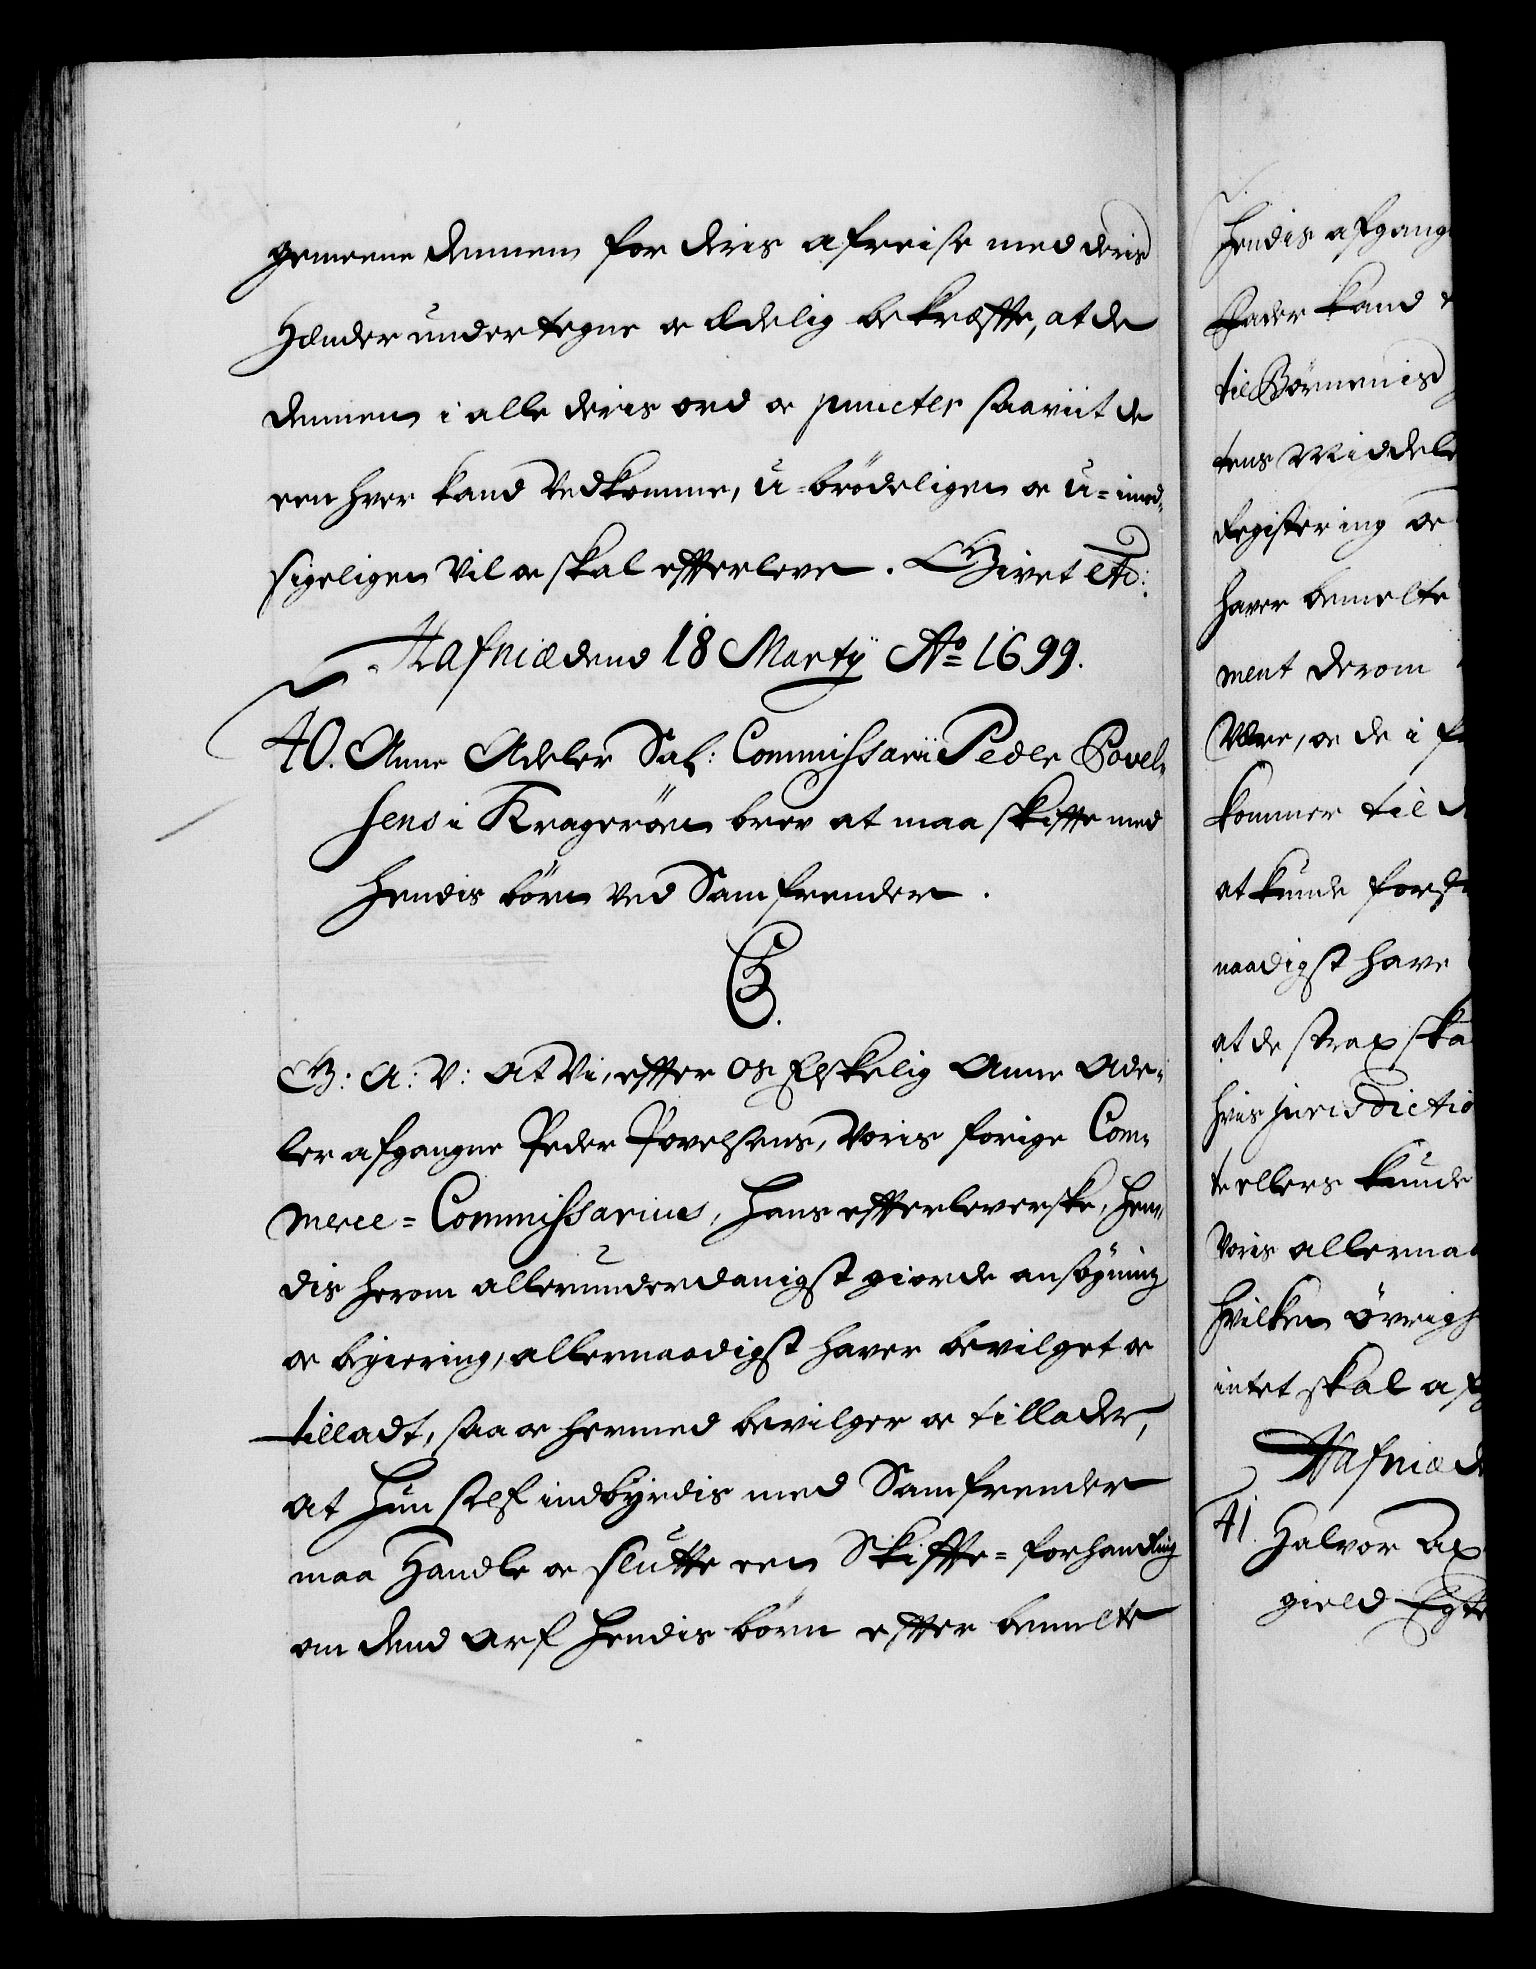 gemeene dennem for deris afreise med deris
Hænder under tegne og Ædelig bekræffte, at de
dennem i alle deris ord og puncter saaviit de
een hver kand Vedkomme, u-brødeligen og u-imod-
sigeligen Vil og skal effterleve. Givet etc:
Hafniæ dend 18 Martij Aō 1699.
40. Anne Adeler Sal: Commissarii Peder Povel-
sens i Kragerøen brev at maa skiffte med
hendis børn ved Samfrender.
C5.
G: A: V: At Vi, effter Os Elskelig Anne Ade-
ler afgangne Peder Povelsens, Voris forige Com-
merce-Commissarius, Hans effterleverske, hen-
dis herom allerunderdanigst giorde ansøgning
og begiering, allernaadigst haver bevilget og
tilladt, saa og hermed bevilger og tillader,
at Hun self indbyrdis med Samfrender
maa Handle og slutte een Skiffte-forhandling
om dend Arf Hendis børn effter bemelte
Hendis afgang
Fader kand
til Børnenis
tens Middele
Registering og
haver bemelte
ment derom
Være, og de i
kommer til
at kunde
naadigst have
at de strax ska
hvis jurisdictio
te ellers kunde
Voris allernaa
hvilken øvrigh
intet skal af
Hafniæ de
41. Halvor Ax
gield Egte